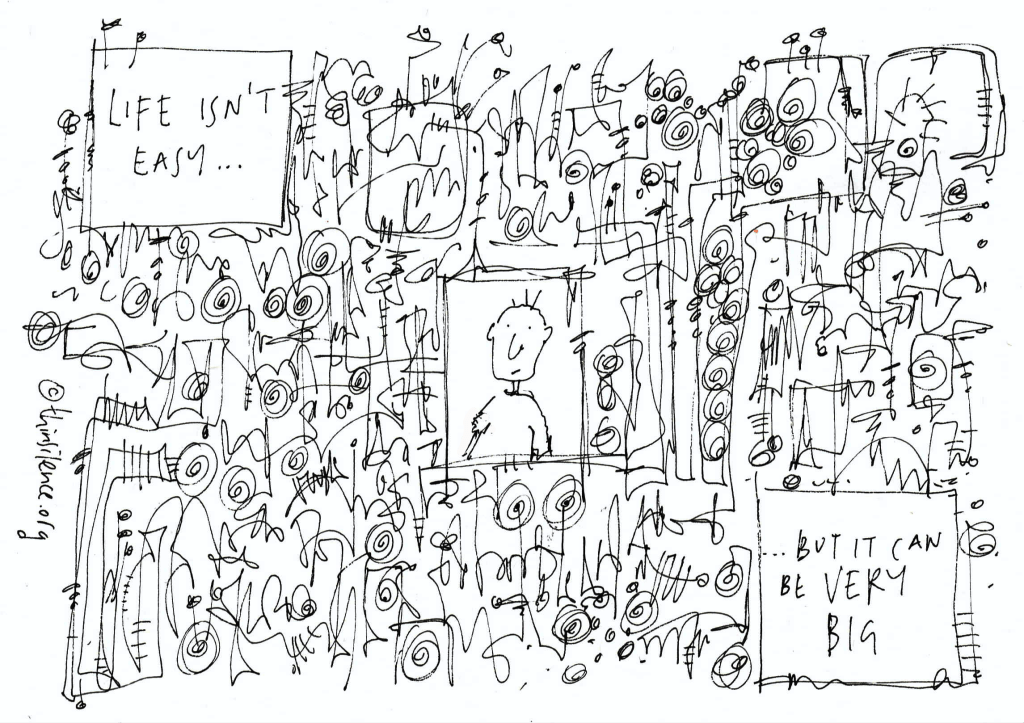 LIFE ISN'T
EASY...
©thinsilence.org
...BUT IT CAN
BE VERY
BIG